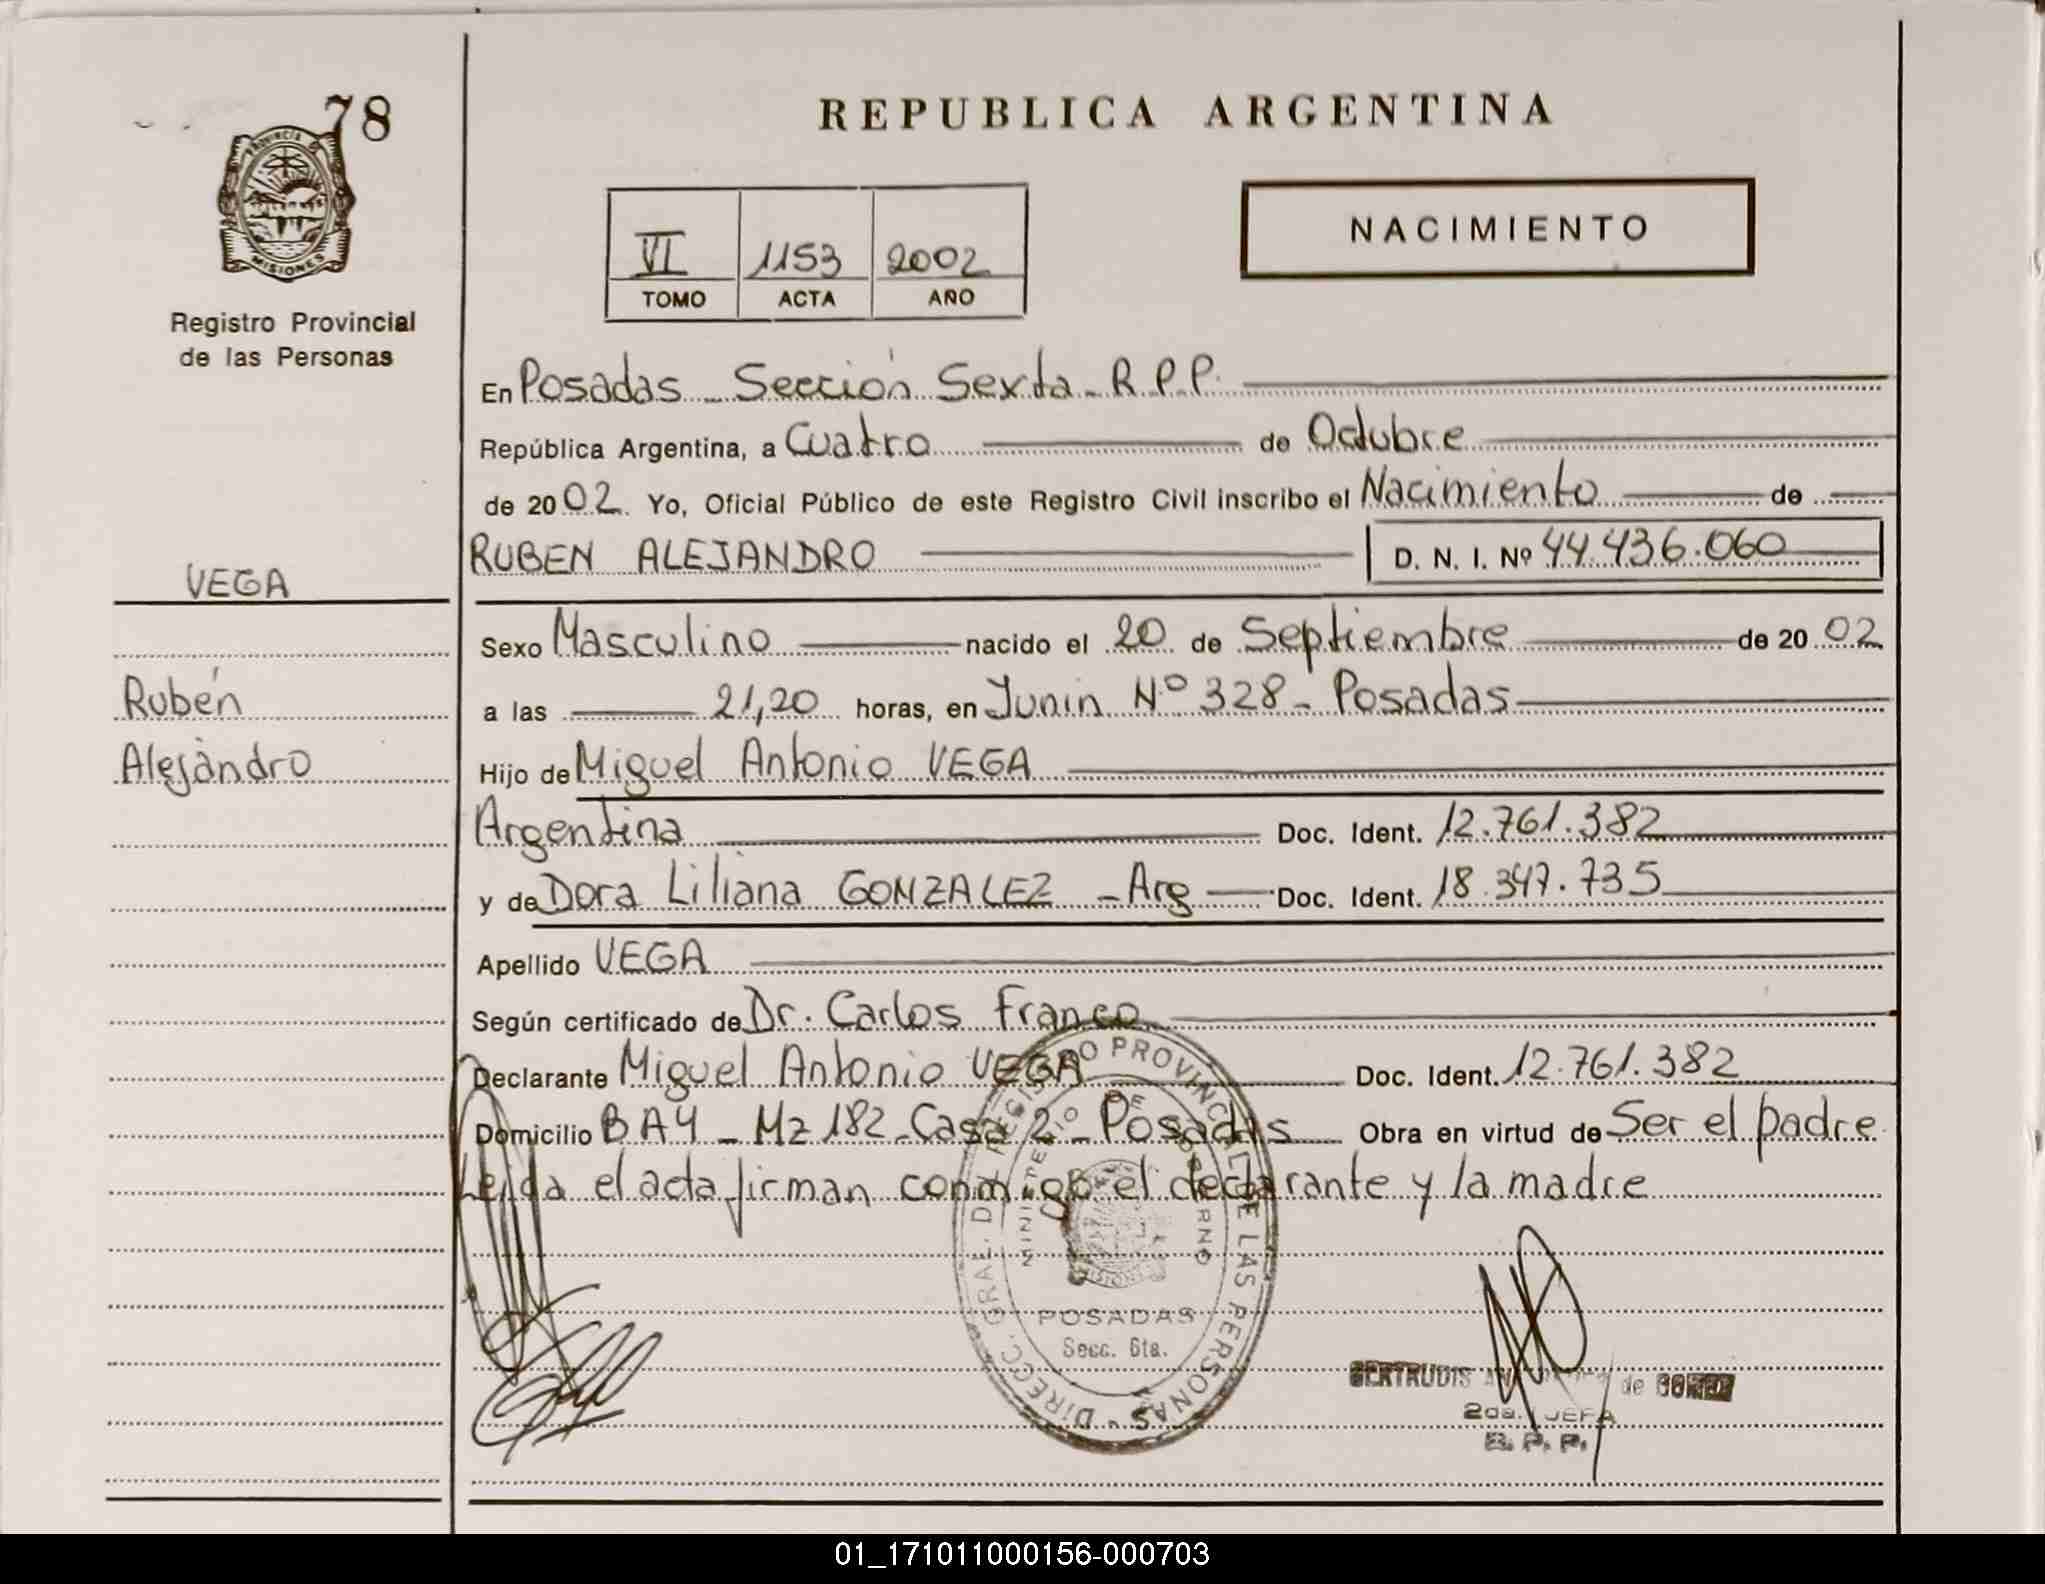 78
PROVINCIA DE
MISIONES
Registro Provincial
de las Personas
VEGA
Rubén
Alejandro
REPUBLICA ARGENTINA
NACIMIENTO
VI 1153 2002
TOMO ACTA AÑO
En Posadas - Sección Sexta - R.P.P.
República Argentina, a Cuatro de Octubre
de 2002. Yo, Oficial Público de este Registro Civil inscribo el Nacimiento de
RUBEN ALEJANDRO D. N. I. Nº 44.436.060
Sexo Masculino nacido el 20 de Septiembre de 2002
a las 21,20 horas, en Junin Nº 328 - Posadas
Hijo de Miguel Antonio VEGA
Argentina Doc. Ident. 12.761.382
y de Dora Liliana GONZALEZ - Arg Doc. Ident. 18.347.735
Apellido VEGA
Según certificado de Dr. Carlos Franco
Declarante Miguel Antonio VEGA Doc. Ident. 12.761.382
Domicilio BA4 - Mz 182 - Casa 2 - Posadas Obra en virtud de Ser el padre
Leída el acta firman conmigo el declarante y la madre
DIRECC. GRAL. DE REGISTRO PROVINCIAL DE LAS PERSONAS
MINISTERIO DE GOBIERNO
MISIONES
POSADAS
Secc. 6ta.
GERTRUDIS de
2da. JEFA
R. P. P.
01_171011000156-000703